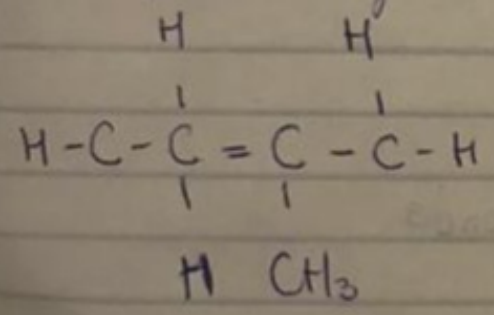 H H
H-C-C=C-C-H
H CH₃